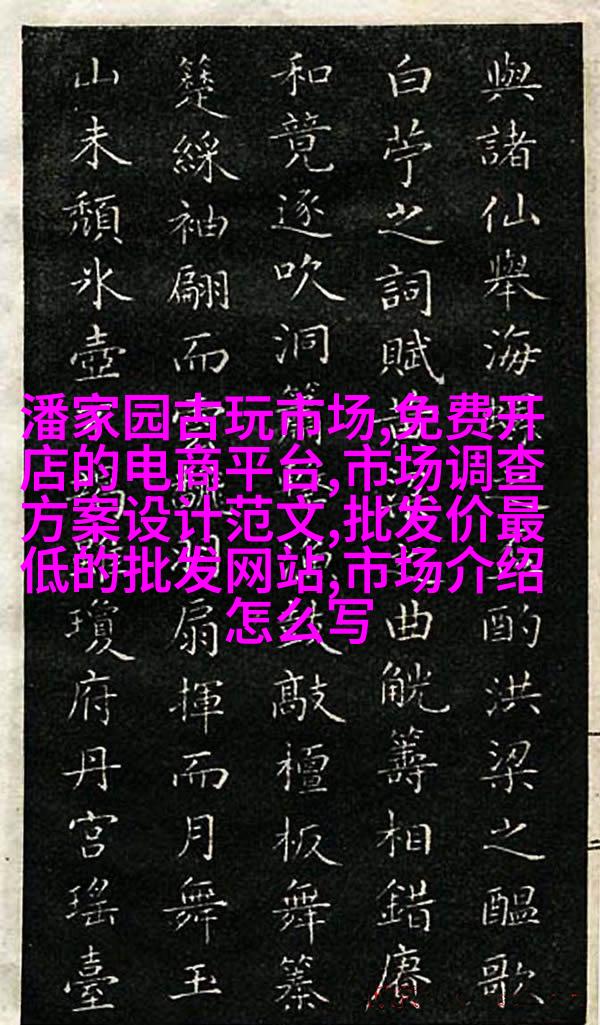 與諸仙舉海酌洪梁之醞歌
白苧之詞賦曲觥籌相錯賡
和竟逐吹洞敲檀板舞
綵袖翩而扇揮而月舞玉
山未頹氷壺瓊府丹宮瑤臺
潘家园古玩市场,免费开
店的电商平台,市场调查
方案设计范文,批发价最
低的批发网站,市场介绍
怎么写